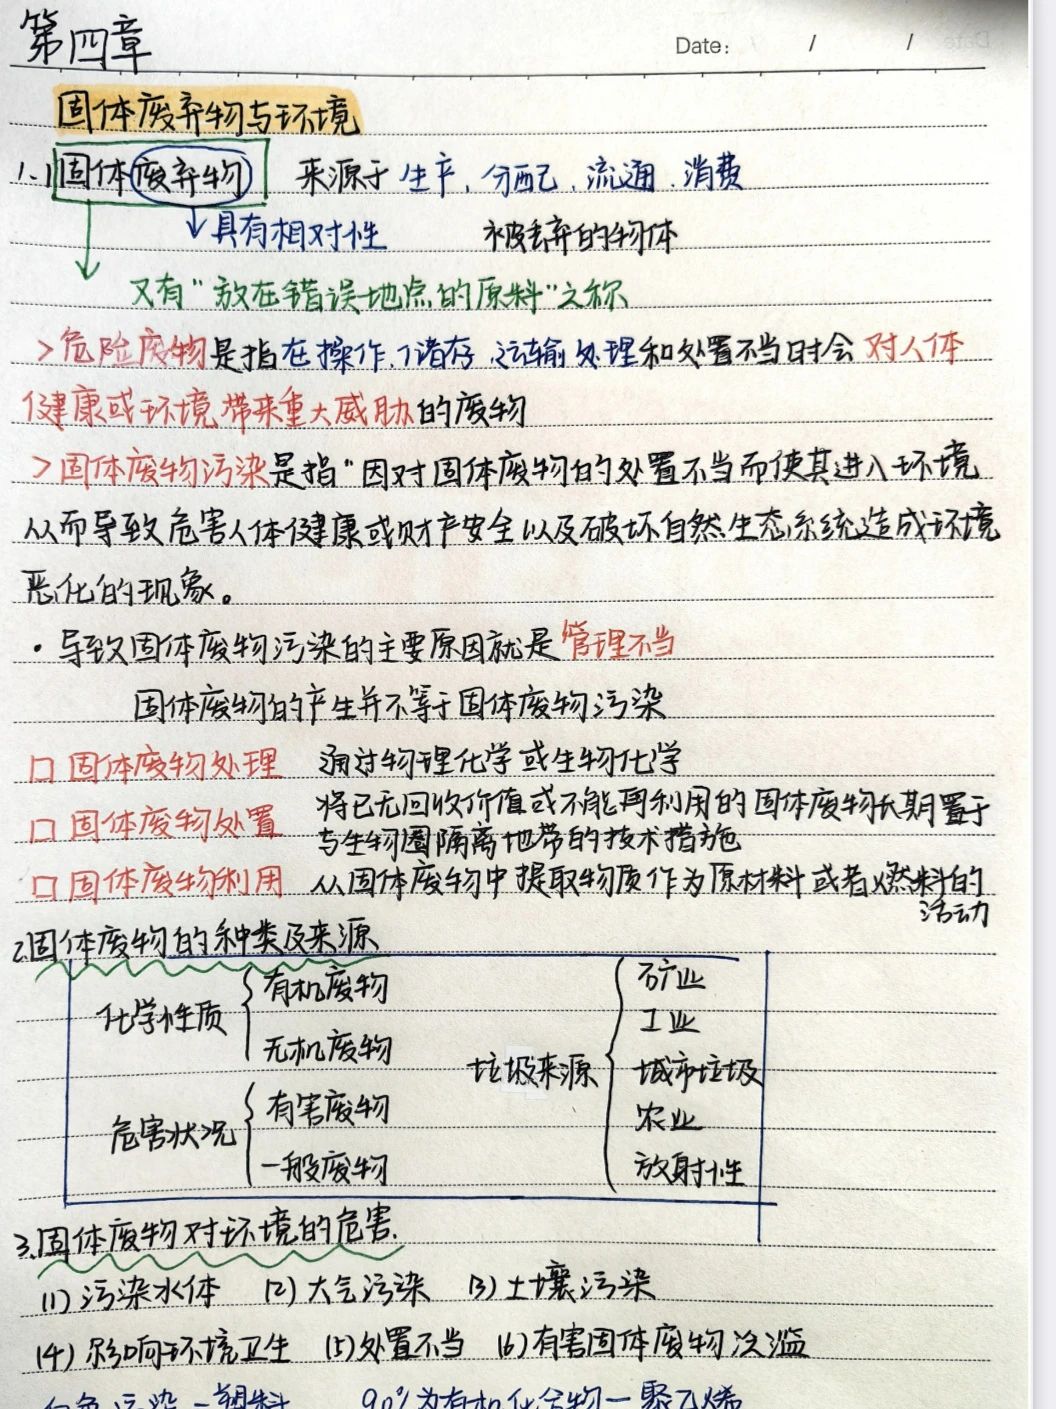 第四章
Date: / /
固体废弃物与环境
1.1 固体废弃物 来源于 生产、分配、流通、消费
具有相对性 被丢弃的物体
又有“放在错误地点的原料”之称
>危险废物是指在操作、储存、运输、处理和处置不当时会对人体
健康或环境带来重大威胁的废物
>固体废物污染是指“因对固体废物的处置不当而使其进入环境
从而导致危害人体健康或财产安全以及破坏自然生态系统造成环境
恶化的现象。
·导致固体废物污染的主要原因就是管理不当
固体废物的产生并不等于固体废物污染
□ 固体废物处理 通过物理化学或生物化学
□ 固体废物处置 将已无回收价值或不能再利用的固体废物长期置于
与生物圈隔离地带的技术措施
□ 固体废物利用 从固体废物中提取物质作为原材料或者燃料的
活动
2.固体废物的种类及来源
化学性质
有机废物
无机废物
危害状况
有害废物
一般废物
垃圾来源
矿业
工业
城市垃圾
农业
放射性
3.固体废物对环境的危害.
(1) 污染水体 (2) 大气污染 (3) 土壤污染
(4) 影响环境卫生 (5) 处置不当 (6) 有害固体废物泛滥
白色污染－塑料 90%为有机化合物－聚乙烯